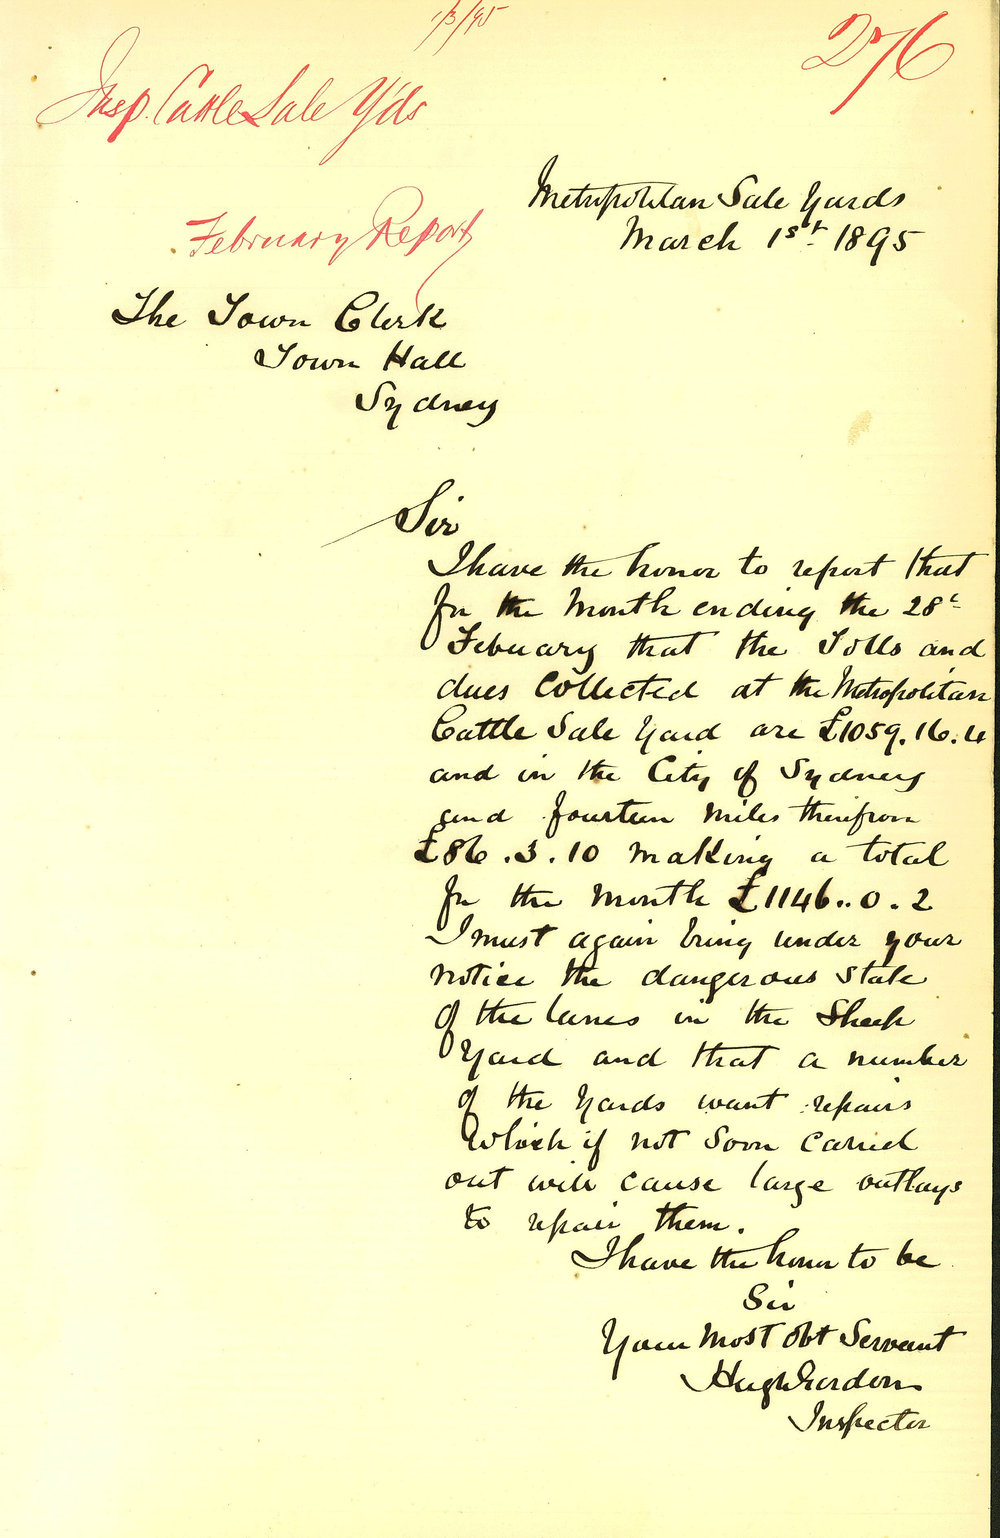 1/3/95
276
Insp. Cattle Sale Yds
February Report
Metropolitan Sale Yards
March 1st 1895
The Town Clerk
Town Hall
Sydney
Sir
I have the honor to report that
for the Month ending the 28th
Febuary that the Tolls and
dues Collected at the Metropolitan
Cattle Sale Yard are £1059.16.4
and in the City of Sydney
and fourteen miles therefrom
£86.3.10 making a total
for the Month £1146..0.2
I must again bring under your
notice the dangerous state
of the lanes in the Sheep
Yard and that a number
of the Yards want repairs
Which if not Soon Carried
out will cause large outlays
to repair them.
I have the honor to be
Sir
Your Most Obt Servant
Hugh Gordon
Inspector